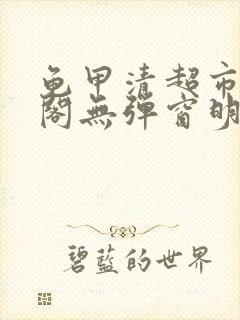 龟甲清超市
阁無弹窗明
碧蓝的世界